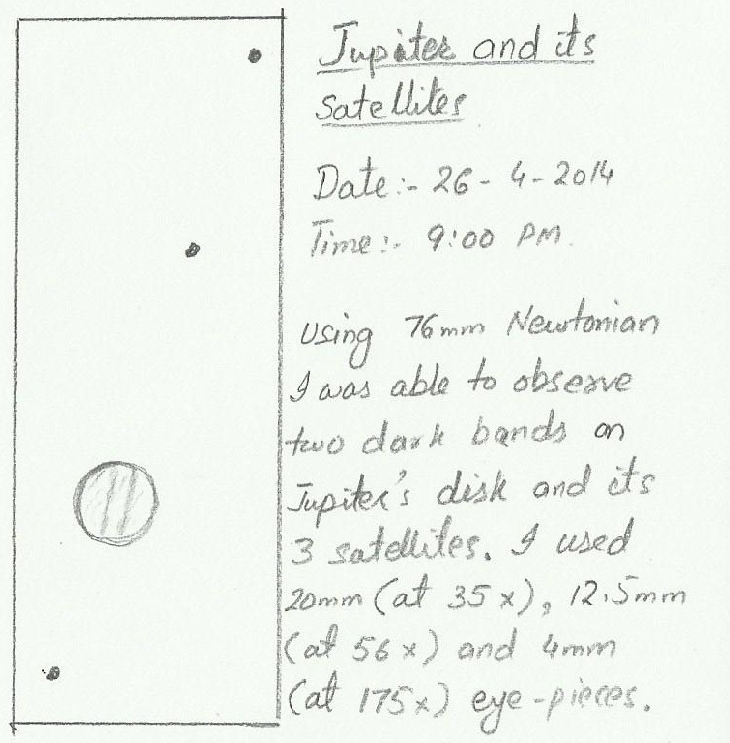 Jupiter and its
Satellites
Date:- 26-4-2014
Time:- 9:00 PM.
Using 76mm Newtonian
I was able to observe
two dark bands on
Jupiter's disk and its
3 satellites. I used
20mm (at 35x), 12.5mm
(at 56x) and 4mm
(at 175x) eye-pieces.